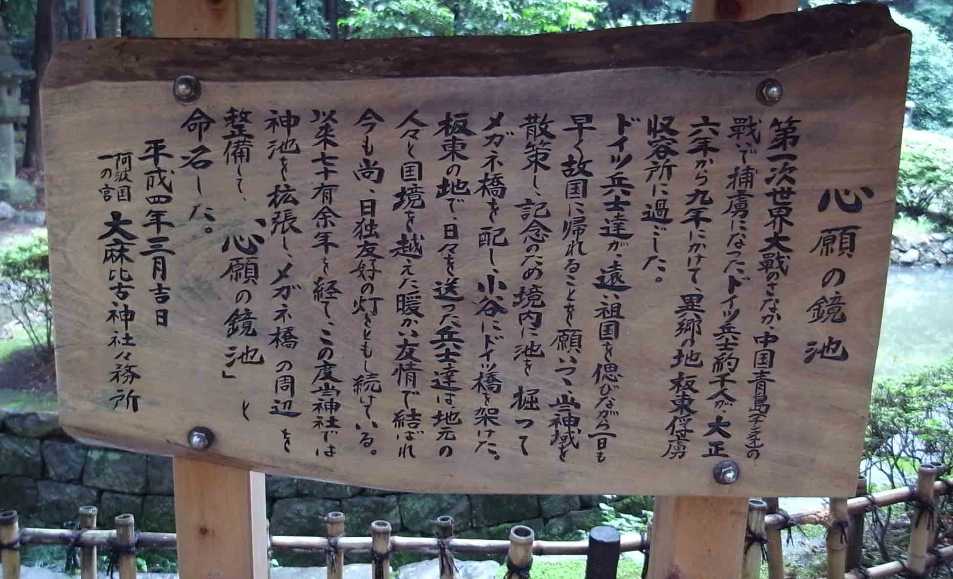 心願の鏡池
第一次世界大戦のさなか、中国青島チンタオの
戦いで捕虜になったドイツ兵士約千人が、大正
六年から九年にかけて、異郷の地板東俘虜
収容所に過ごした。
ドイツ兵士達が、遠い祖国を偲びながら一日も
早く故国に帰れることを願いつゝ当神域を
散策し、記念のため境内に池を掘って
メガネ橋を配し、小谷にドイツ橋を架けた。
板東の地で、日々を送った兵士達は地元の
人々と国境を越えた暖かい友情で結ばれ
今も尚、日独友好の灯をともし続けている。
以来七十有余年を経て、この度当神社では
神池を拡張し、メガネ橋の周辺を
整備して、「心願の鏡池」と
命名した。
平成四年三月吉日
阿波国一の宮 大麻比古神社々務所